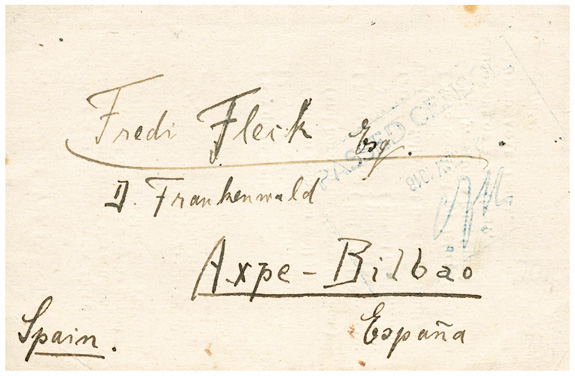 Fredi Fleck Esq.
PASSED CENSOR
D. Frankenwald
Axpe-Bilbao
España
Spain.